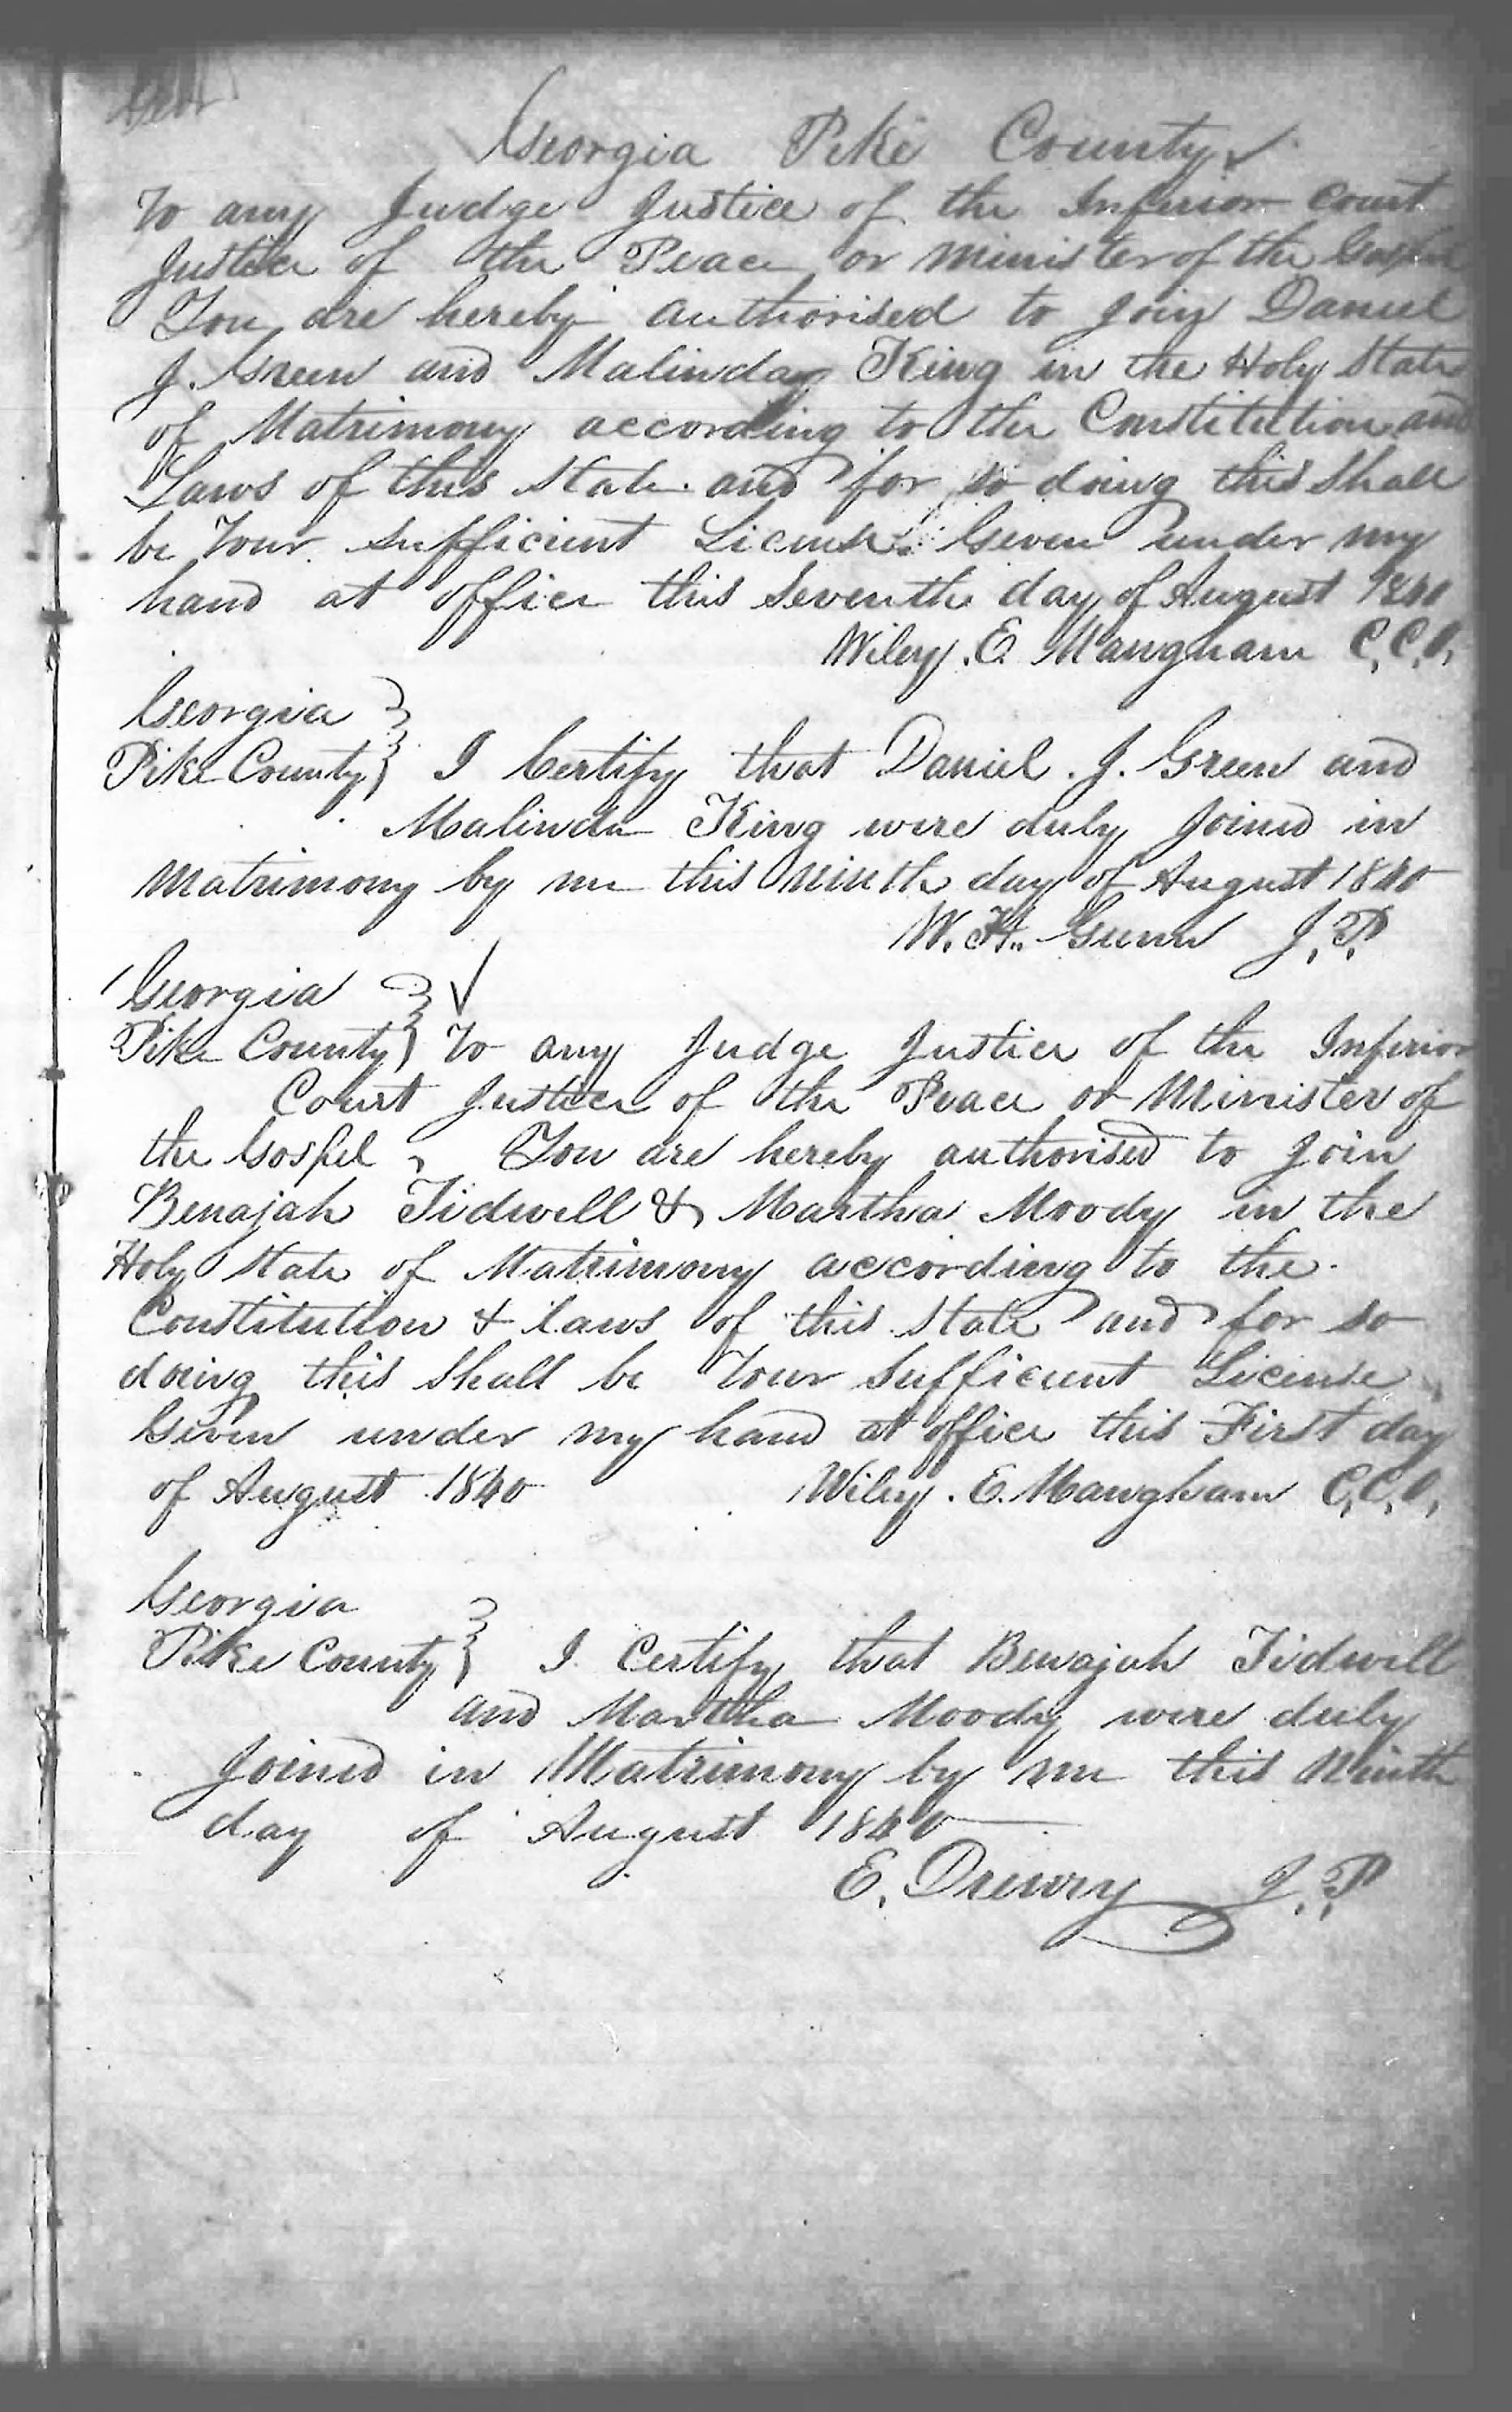 Georgia Pike County
To any Judge Justice of the Inferior Court
Justice of the Peace or Minister of the Gospel
You are hereby authorised to join Daniel
J. Green and Malinda King in the Holy State
of Matrimony according to the Constitution and
Laws of this State and for so doing this shall
be Your sufficient License Given under my
hand at office this Seventh day of August 1840
Wiley. E. Mangham C.C.O.
Georgia
Pike County } I Certify that Daniel. J. Green and
Malinda King were duly Joined in
Matrimony by me this Ninth day of August 1840
W. H. Gunn J.P.
Georgia
Pike County } To any Judge Justice of the Inferior
Court Justice of the Peace or Minister of
the Gospel, You are hereby authorised to Join
Benajah Tidwell & Martha Moody in the
Holy State of Matrimony according to the
Constitution & Laws of this State and for so
doing this Shall be Your Sufficient License
Given under my hand at office this First day
of August 1840 Wiley. E. Mangham C.C.O.
Georgia
Pike County } I Certify that Benajah Tidwell
and Martha Moody were duly
Joined in Matrimony by me this Ninth
day of August 1840
E. Drewry J.P.